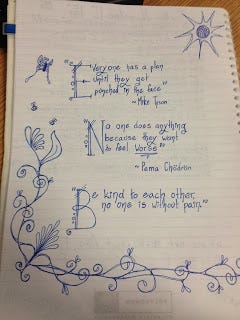 Everyone has a plan
until they get
punched in the face"
~ Mike Tyson
No one does anything
because they want
to feel worse"
~ Pema Chödrön
Be kind to each other,
no one is without pain."